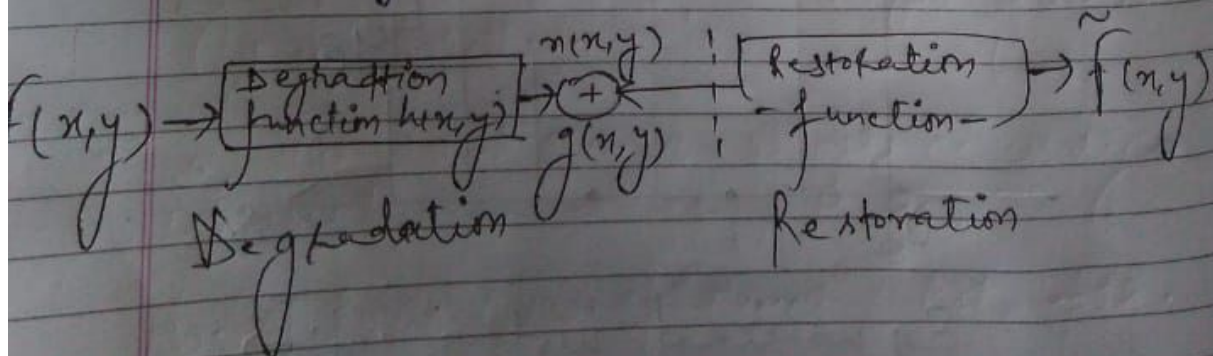 n(x,y)
f(x,y) → Degradtion function h(x,y) → + ← Restoration function → f̃(x,y)
g(x,y)
Degradation Restoration